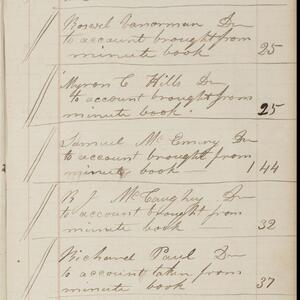 Roswel Vanorman Dr
to account brought from
minute book 25
Myron C Hills Dr
to account brought from
minute book 25
Samuel Mc Emery Dr
to account brought from
minute book 1 44
R J McCaughey Dr
to account brought from
minute book 32
Richard Paul Dr
to account taken from
minute book 37